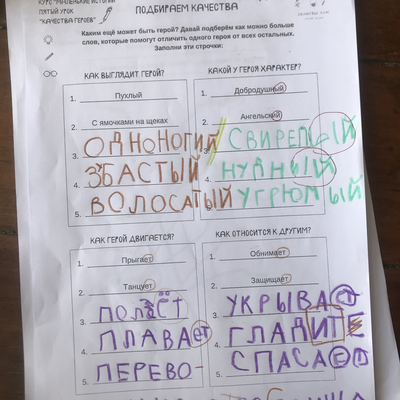 КУРС "МАЛЕНЬКИЕ ИСТОРИИ"
ПЯТЫЙ УРОК
"КАЧЕСТВА ГЕРОЕВ"
ПОДБИРАЕМ КАЧЕСТВА
Каким ещё может быть герой? Давай подберём как можно больше
слов, которые помогут отличить одного героя от всех остальных.
Заполни эти строчки:
КАК ВЫГЛЯДИТ ГЕРОЙ?
1. Пухлый
2. С ямочками на щеках
3. ОДНОНОГИЙ
4. ЗБАСТЫЙ
5. ВОЛОСАТЫЙ
КАКОЙ У ГЕРОЯ ХАРАКТЕР?
1. Добродушный
2. Ангельский
3. СВИРЕПЫЙ
4. НУДНЫЙ
5. УГРЮМЫЙ
КАК ГЕРОЙ ДВИГАЕТСЯ?
1. Прыгает
2. Танцует
3.
4. ПЛАВАЕТ
5. ПЕРЕВО-
КАК ОТНОСИТСЯ К ДРУГИМ?
1. Обнимает
2. Защищает
3. УКРЫВАЕТ
4. ГЛАДИТ
5. СПАСАЕТ